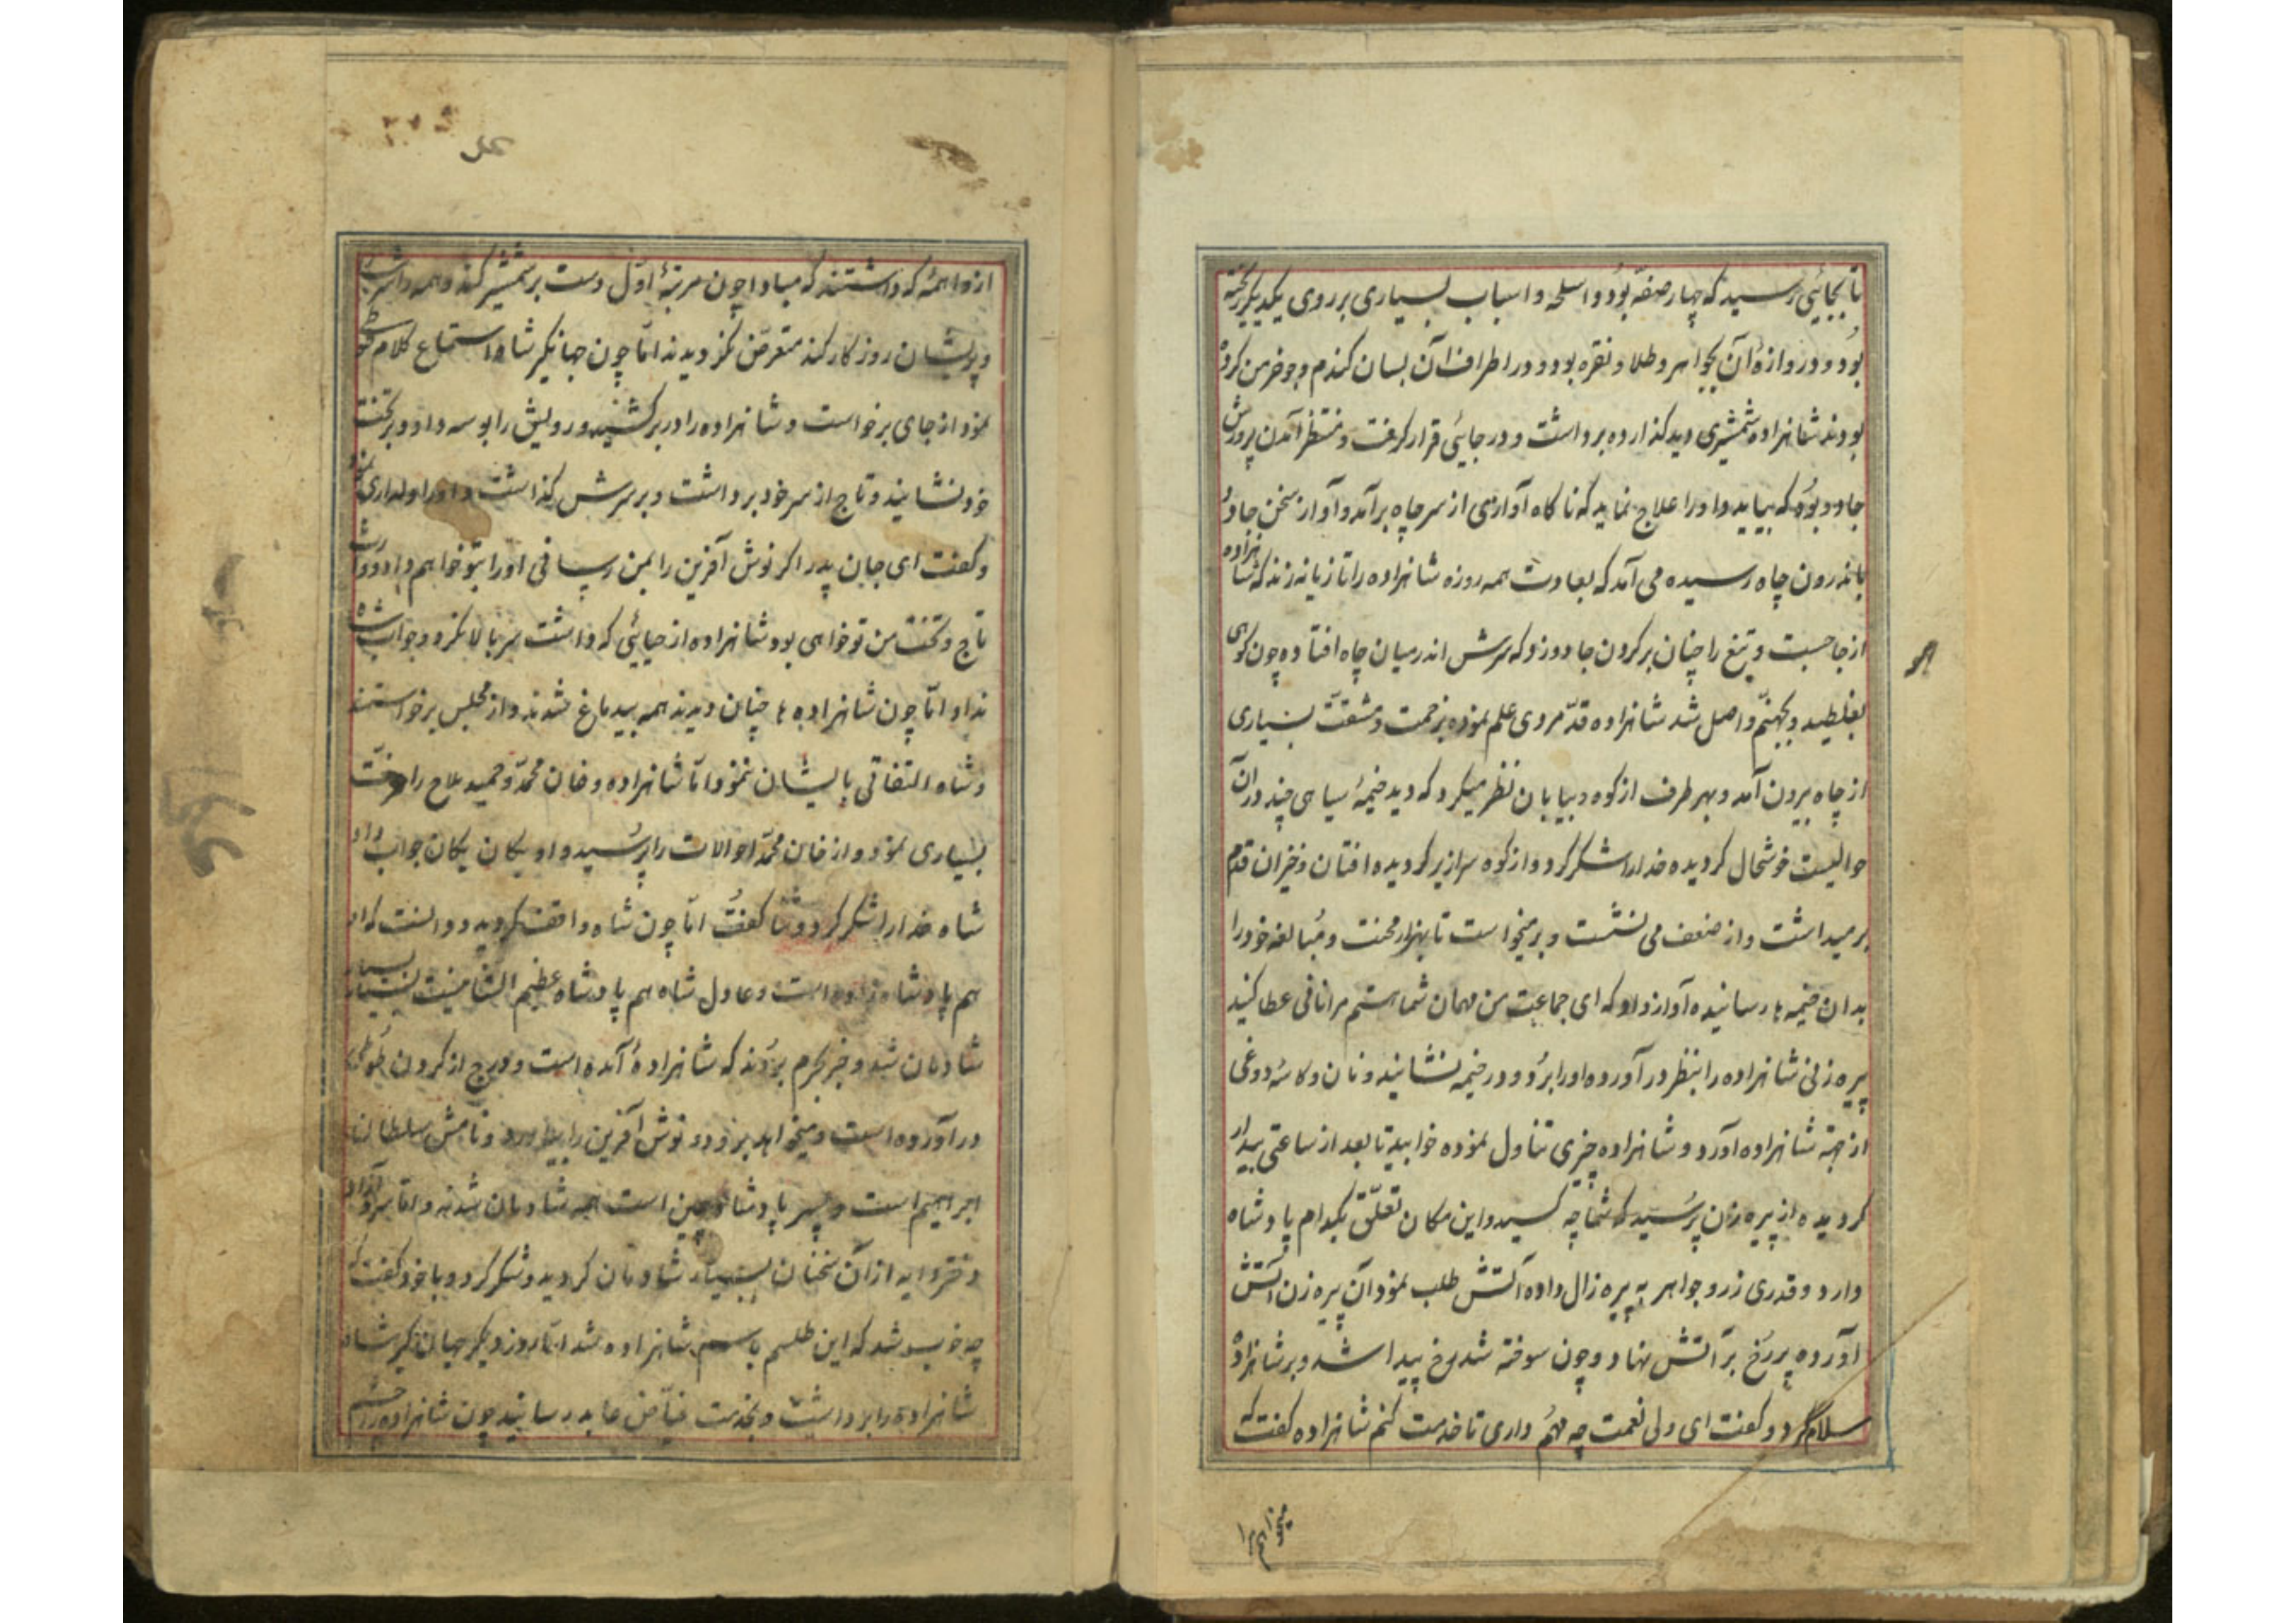 تا بجائی رسید که چهار صفّه بود و اسلحه و اسباب بسیاری بر روی یکدیگر ریخته
بود و دروازهٔ آن بجواهر و طلا و نقره بود و در اطراف آن بسان کندم و جو خرمن کرده
بودند شاهزاده شمشیری دید کذارده برداشت و در جایی قرار کرفت و منتظر آمدن
جادو بود که بیاید و او را علاج نماید که ناکاه آوازی از سر چاه برآمد و آواز سخن جادو
باندرون چاه رسیده می آمد که بعادت همه روزه شاهزاده را تازیانه زند که شاهزاده
از جا جست و تیغ را چنان بر کردن جادو زد که سرش اندر میان چاه افتاده چون کوهی
بغلطید و بجهنّم واصل شد شاهزاده قدّ مردی علم نموده بزحمت و مشقّت بسیاری
از چاه بیرون آمد و بهر طرف از کوه و بیابان نظر میکرد که دید خیمهٔ سیاهی چند در آن
حوالیست خوشحال کردیده خدا را شکر کرد و از کوه سرازیر کردیده افتان و خیزان قدم
بر میداشت و از ضعف می نشست و برمیخواست تا بهزار محنت و مبالغه خود را
بدان خیمه ها رسانیده آواز داد که ای جماعت من مهمان شما هستم مرا نانی عطا کنید
پیره زنی شاهزاده را بنظر در آورده او را برد و در خیمه نشانید و نان و کاسه دوغی
از جهة شاهزاده آورد و شاهزاده چیزی تناول نموده خوابید تا بعد از ساعتی بیدار
کردیده از پیره زن پرسید که شما چه کسید و این مکان تعلّق بکدام پادشاه
دارد و قدری زر و جواهر به پیره زال داده آتش طلب نمود آن پیره زن آتش
آورده پر رخ بر آتش نهاد و چون سوخته شد رخ پیدا شد و بر شاهزاده
سلام کرد و کفت ای ولی نعمت چه مهم داری تا خدمت کنم شاهزاده کفت که
میخواهم مرا
از واهمهٔ که داشتند که مبادا چون مرتبهٔ اوّل دست بر شمشیر کند و همه را
و پریشان روزکار کند متعرّض نکردیدند امّا چون جهانکیر شاه استماع کلام
نمود از جای برخواست و شاهزاده را در بر کشید و رویش را بوسه داد و بر تخت
خود نشانید و تاج از سر خود برداشت و بر سرش کذاشت و او را دلداری
و کفت ای جان پدر اکر نوش آفرین را بمن رسانی او را بتو خواهم داد و
تاج و تخت من تو خواهی بود شاهزاده از حیایی که داشت سر بالا نکرد و جواب شاه
نداد امّا چون شاهزاده ها چنان دیدند همه بیدماغ شدند و از مجلس برخواستند
و شاه التفاتی بایشان ننمود امّا شاهزاده و خان محمّد و حمید ملاح را
بسیاری نمود و از خان محمّد احوالات را پرسید و او یکان یکان جواب داد
شاه خدا را شکر کرد و ثنا کفت امّا چون شاه واقف کردید و دانست که او
هم پادشاه زاده است و عادل شاه هم پادشاه عظیم الشانیست بسیار
شادمان شد و خبر بحرم بردند که شاهزادهٔ آمده است و
در آورده است و میخواهد برود و نوش آفرین را بیاورد و نامش سلطان
ابراهیم است و پسر پادشاه چین است همه شادمان شدند و امّا
دختر دایه از آن سخنان بسیار شادمان کردید و شکر کرد و با خود کفت که
چه خوب شد که این طلسم باسم شاهزاده شد امّا روز دیکر جهانکیر شاه
شاهزاده را برداشت و بخدمت فیّاض عابد رسانید چون شاهزاده را چشم